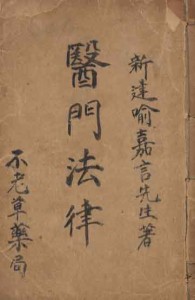 新建喻嘉言先生著
醫門法律
不老草藥局